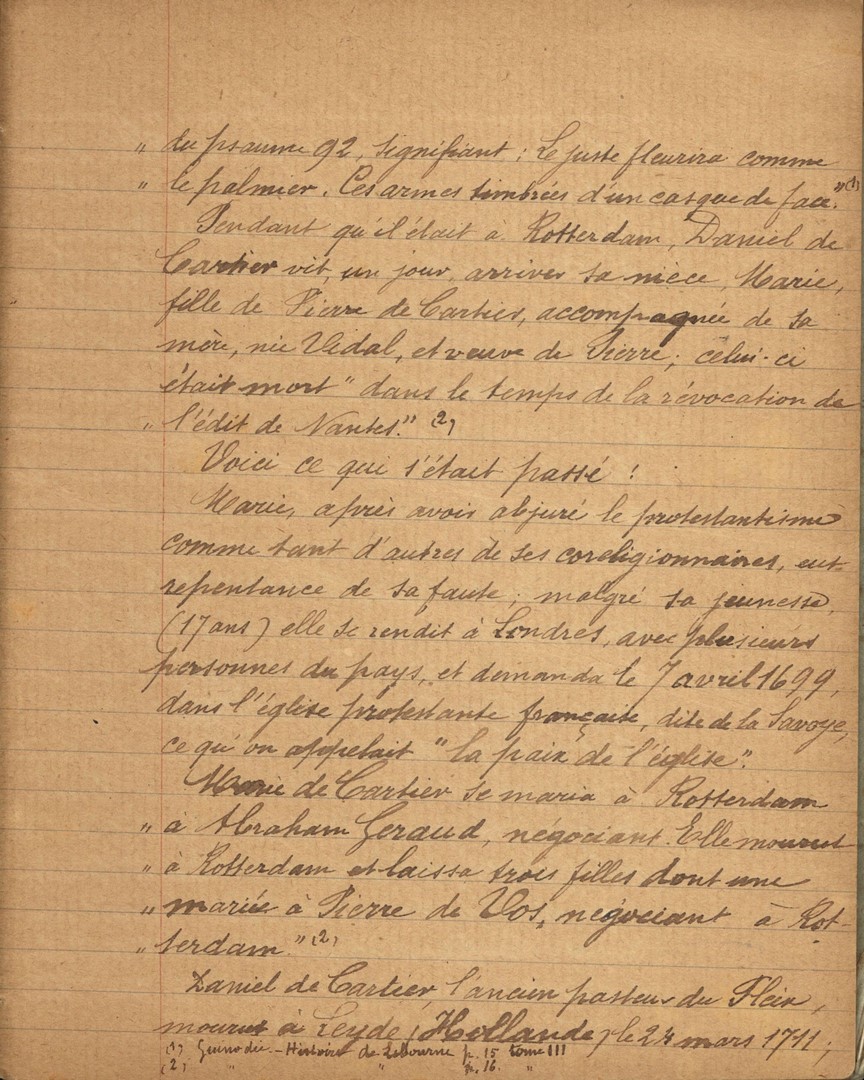 " du psaume 92, signifiant : Le juste fleurira comme
" le palmier. Ces armes timbrées d'un casque de face." (1)
Pendant qu'il était à Rotterdam, Daniel de
Cartier vit, un jour, arriver sa nièce, Marie,
fille de Pierre de Cartier, accompagnée de sa
mère, née Vidal, et veuve de Pierre ; celui-ci
était mort " dans le temps de la révocation de
" l'édit de Nantes." (2)
Voici ce qui s'était passé :
Marie, après avoir abjuré le protestantisme
comme tant d'autres de ses coreligionnaires, eut
repentance de sa faute ; malgré sa jeunesse,
(17 ans) elle se rendit à Londres, avec plusieurs
personnes du pays, et demanda le 7 avril 1699,
dans l'église protestante française, dite de la Savoye,
ce qu'on appelait " la paix de l'église".
Marie de Cartier se maria à Rotterdam
" à Abraham Geraud, négociant. Elle mourut
" à Rotterdam et laissa trois filles dont une
" mariée à Pierre de Vos, négociant à Rot-
" terdam " (2)
Daniel de Cartier, l'ancien pasteur du Fleix,
mourut à Leyde (Hollande) le 24 mars 1711 ;
(1) Guinodie - Histoire de Libourne p. 15 tome III
(2) " " " p. 16. "